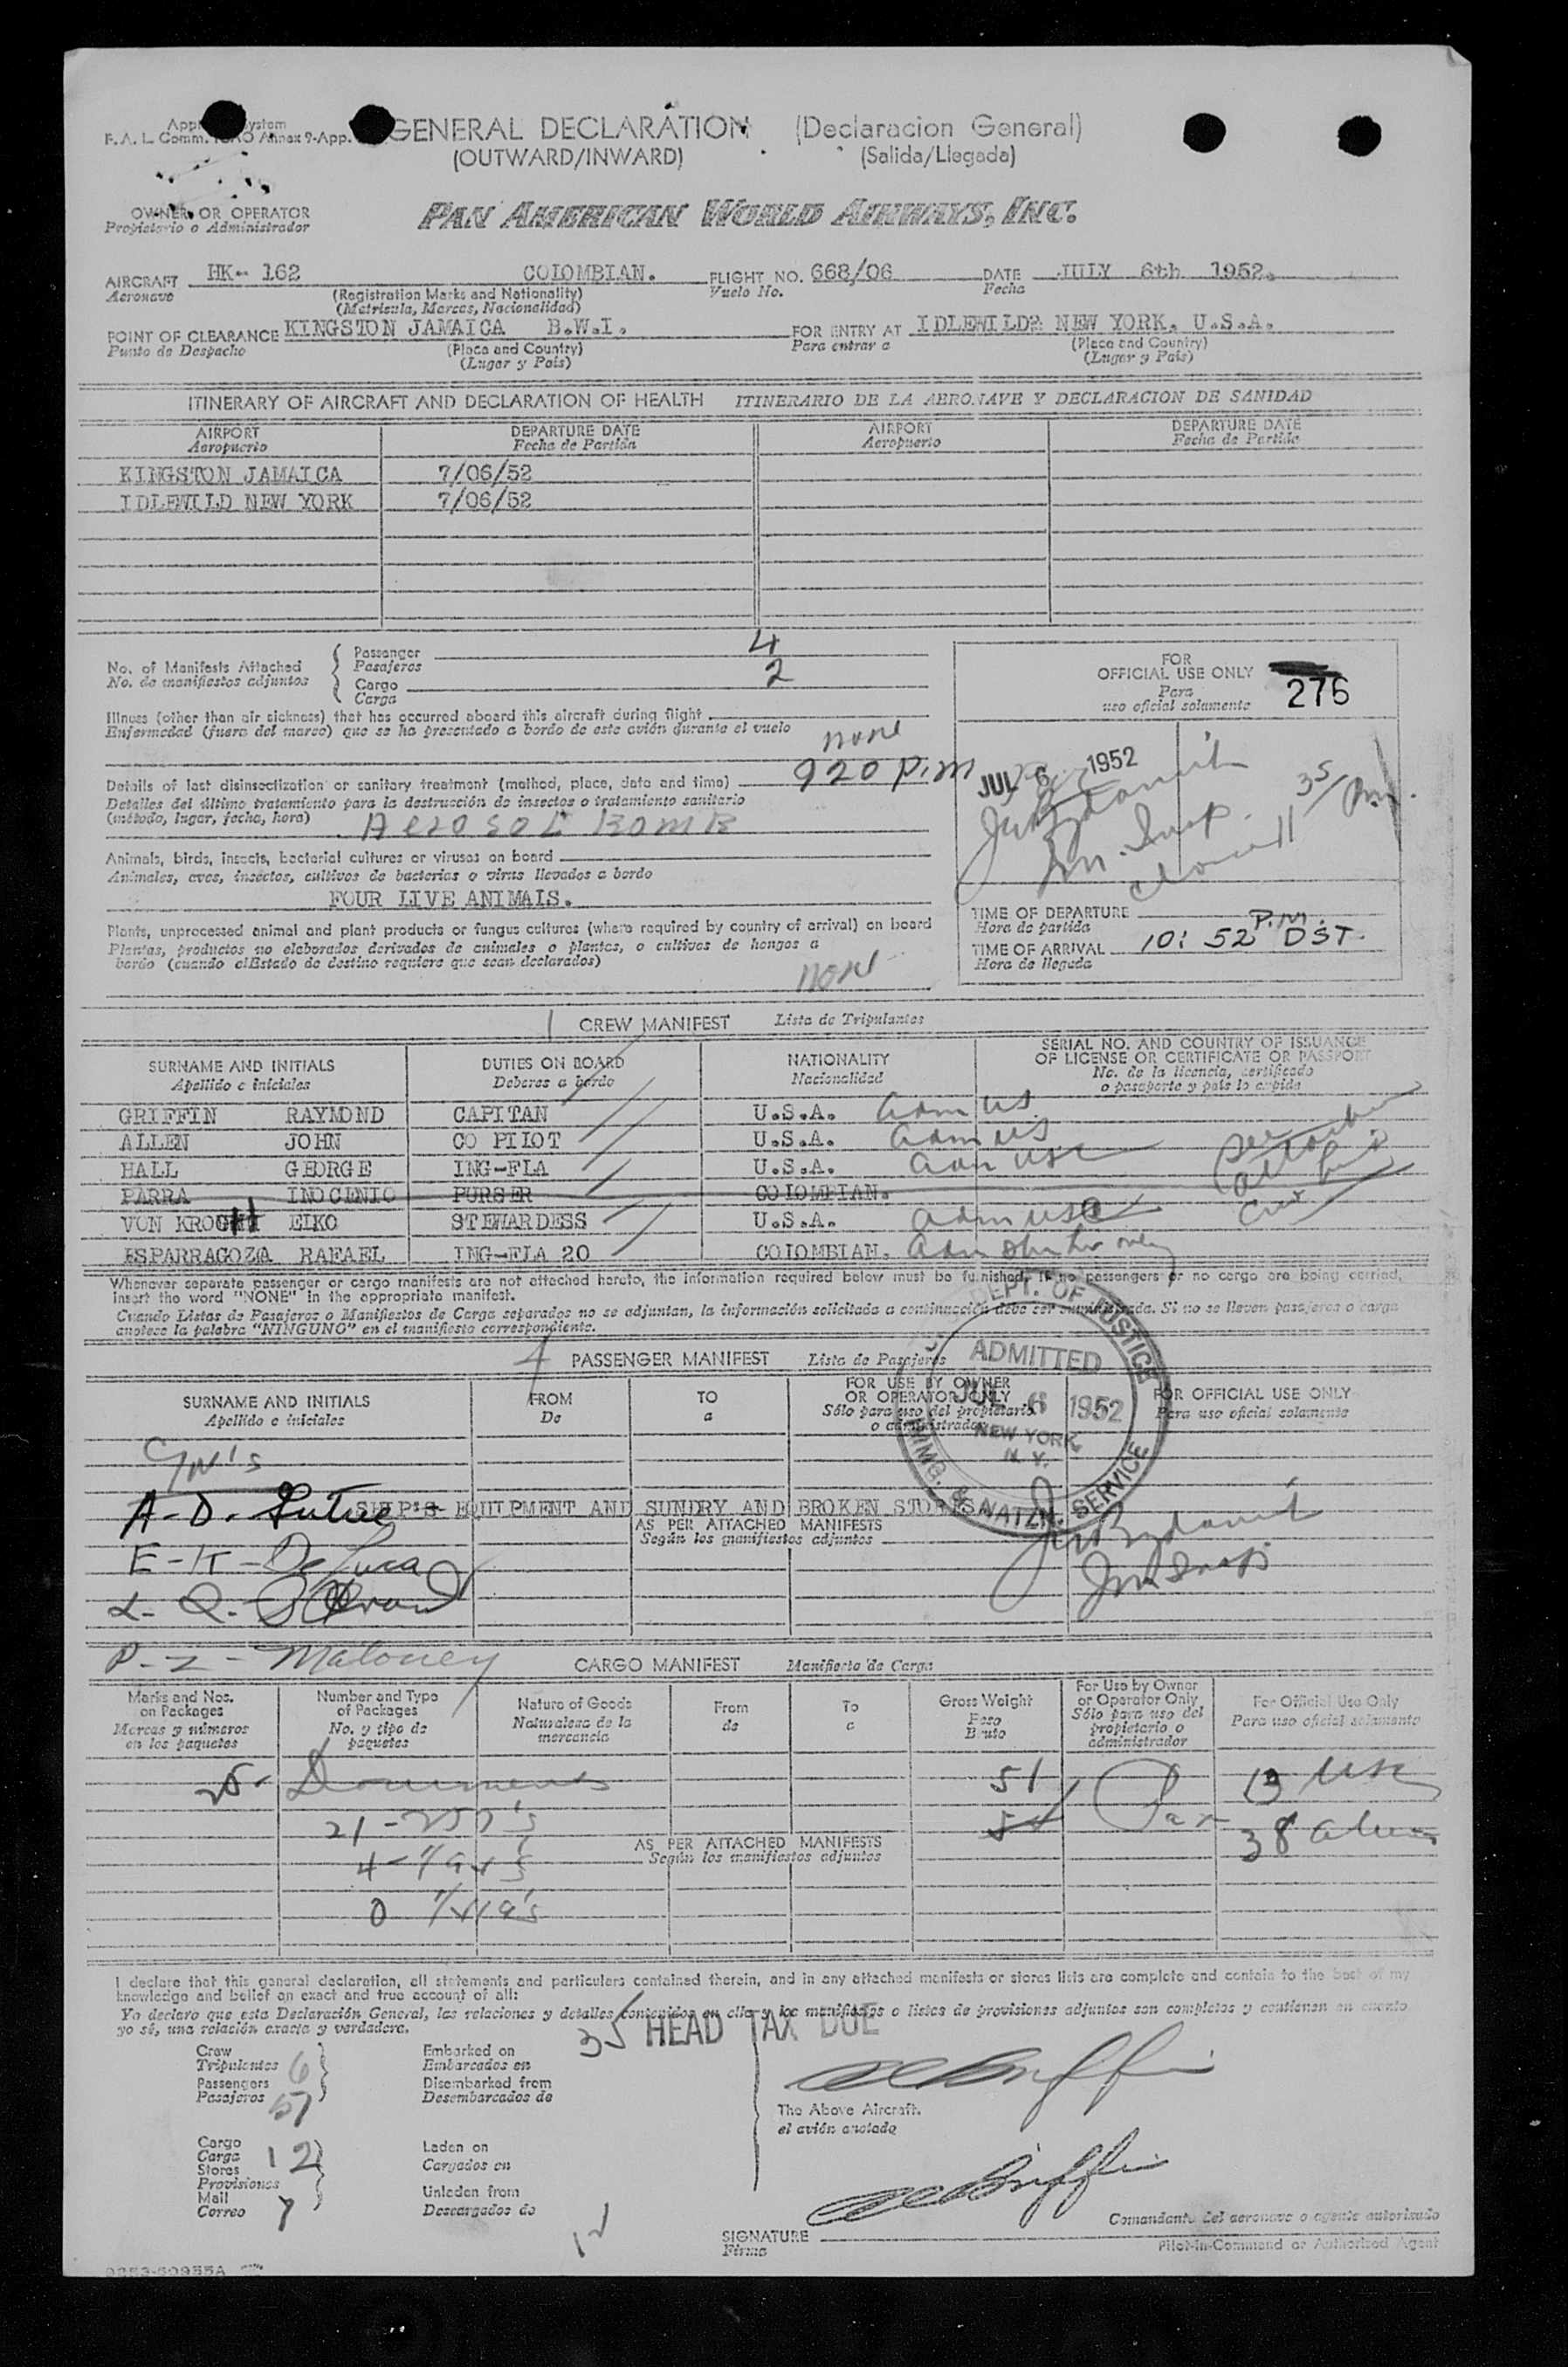 GENERAL DECLARATION (Declaracion General)
F. A. L. Comm. Annex 9-App.
(OUTWARD/INWARD) (Salida/Llegada)
OWNER OR OPERATOR PAN AMERICAN WORLD AIRWAYS, INC.
Propietario o Administrador
AIRCRAFT HK- 162 COLOMBIAN. FLIGHT NO. 668/06 DATE JULY 6th 1952.
Aeronave (Registration Marks and Nationality) Vuelo No. Fecha
(Matricula, Marcas, Nacionalidad)
POINT OF CLEARANCE KINGSTON JAMAICA B.W.I. FOR ENTRY AT IDLEWILD& NEW YORK. U.S.A.
Punto de Despacho (Place and Country) Para entrar a (Place and Country)
(Lugar y Pais) (Lugar y Pais)
ITINERARY OF AIRCRAFT AND DECLARATION OF HEALTH ITINERARIO DE LA AERONAVE Y DECLARACION DE SANIDAD
AIRPORT DEPARTURE DATE AIRPORT DEPARTURE DATE
Aeropuerto Fecha de Partida Aeropuerto Fecha de Partida
KINGSTON JAMAICA 7/06/52
IDLEWILD NEW YORK 7/06/52
No. of Manifests Attached Passenger 4
No. de manifiestos adjuntos Pasajeros
Cargo 2
Carga
FOR
OFFICIAL USE ONLY
Para
uso oficial solamente
276
Illness (other than air sickness) that has occurred aboard this aircraft during flight
Enfermedad (fuera del mareo) que se ha presentado a bordo de este avión durante el vuelo
none
Details of last disinsectization or sanitary treatment (method, place, date and time) 920 P.M
Detalles del último tratamiento para la destrucción de insectos o tratamiento sanitario
(método, lugar, fecha, hora) AEROSOL BOMB
JUL 6 1952
Im. Insp.
11 35/ P.M.
Animals, birds, insects, bacterial cultures or viruses on board
Animales, aves, insectos, cultivos de bacterias o virus llevados a bordo
FOUR LIVE ANIMALS.
Plants, unprocessed animal and plant products or fungus cultures (where required by country of arrival) on board
Plantas, productos no elaborados derivados de animales o plantas, o cultivos de hongos a
bordo (cuando elEstado de destino requiere que sean declarados)
none
TIME OF DEPARTURE
Hora de partida
TIME OF ARRIVAL 10: 52 P.M. DST.
Hora de llegada
1 CREW MANIFEST Lista de Tripulantes
SURNAME AND INITIALS DUTIES ON BOARD NATIONALITY SERIAL NO. AND COUNTRY OF ISSUANCE
OF LICENSE OR CERTIFICATE OR PASSPORT
Apellido e iniciales Deberes a bordo Nacionalidad No. de la licencia, certificado
o pasaporte y pais lo expide
GRIFFIN RAYMOND CAPITAN U.S.A. adm US
ALLEN JOHN CO PILOT U.S.A. adm US
HALL GEORGE ING-FLA U.S.A. adm USC
PARRA INOCENIO PURSER COLOMBIAN.
VON KROGH EIKO STEWARDESS U.S.A. adm USC
ESPARRAGOZA RAFAEL ING-FLA 20 COLOMBIAN.
Whenever separate passenger or cargo manifests are not attached hereto, the information required below must be furnished. If no passengers or no cargo are being carried,
insert the word "NONE" in the appropriate manifest.
Cuando Listas de Pasajeros o Manifiestos de Carga separados no se adjuntan, la información solicitada a continuación debe ser suministrada. Si no se llevan pasajeros o carga
anotese la palabra "NINGUNO" en el manifiesto correspondiente.
4 PASSENGER MANIFEST Lista de Pasajeros
DEPT. OF JUSTICE
ADMITTED
JUL 6 1952
NEW YORK
N. Y.
IMMG. & NATZN. SERVICE
SURNAME AND INITIALS FROM TO FOR USE BY OWNER
OR OPERATOR ONLY FOR OFFICIAL USE ONLY
Apellido e iniciales De a Sólo para uso del propietario
o administrador Para uso oficial solamente
A-D-
SHIP'S EQUIPMENT AND SUNDRY AND BROKEN STORES
AS PER ATTACHED MANIFESTS
Según los manifiestos adjuntos
E-K-DeLuca
P-Z-Maloney
CARGO MANIFEST Manifiesto de Carga
Marks and Nos.
on Packages
Marcas y números
en los paquetes
Number and Type
of Packages
No. y tipo de
paquetes
Nature of Goods
Naturaleza de la
mercancia
From
de
To
a
Gross Weight
Peso
Bruto
For Use by Owner
or Operator Only
Sólo para uso del
propietario o
administrador
For Official Use Only
Para uso oficial solamente
25 Documents 51 Pax 13 USC
21- 38
AS PER ATTACHED MANIFESTS
Según los manifiestos adjuntos
4-
0
I declare that this general declaration, all statements and particulars contained therein, and in any attached manifests or stores lists are complete and contain to the best of my
knowledge and belief an exact and true account of all:
Yo declaro que esta Declaración General, las relaciones y detalles contenidos en ella y los manifiestos o listas de provisiones adjuntos son completos y contienen en cuanto
yo sé, una relación exacta y verdadera.
35 HEAD TAX DUE
Crew Embarked on
Tripulantes 6 Embarcados en
Passengers Disembarked from
Pasajeros 51 Desembarcados de
The Above Aircraft.
el avión anotado
Cargo Laden on
Carga 12 Cargados en
Stores
Provisiones
Mail Unladen from
Correo 7 Descargados de
SIGNATURE
Firma
Comandante del aeronave o agente autorizado
Pilot-in-Command or Authorized Agent